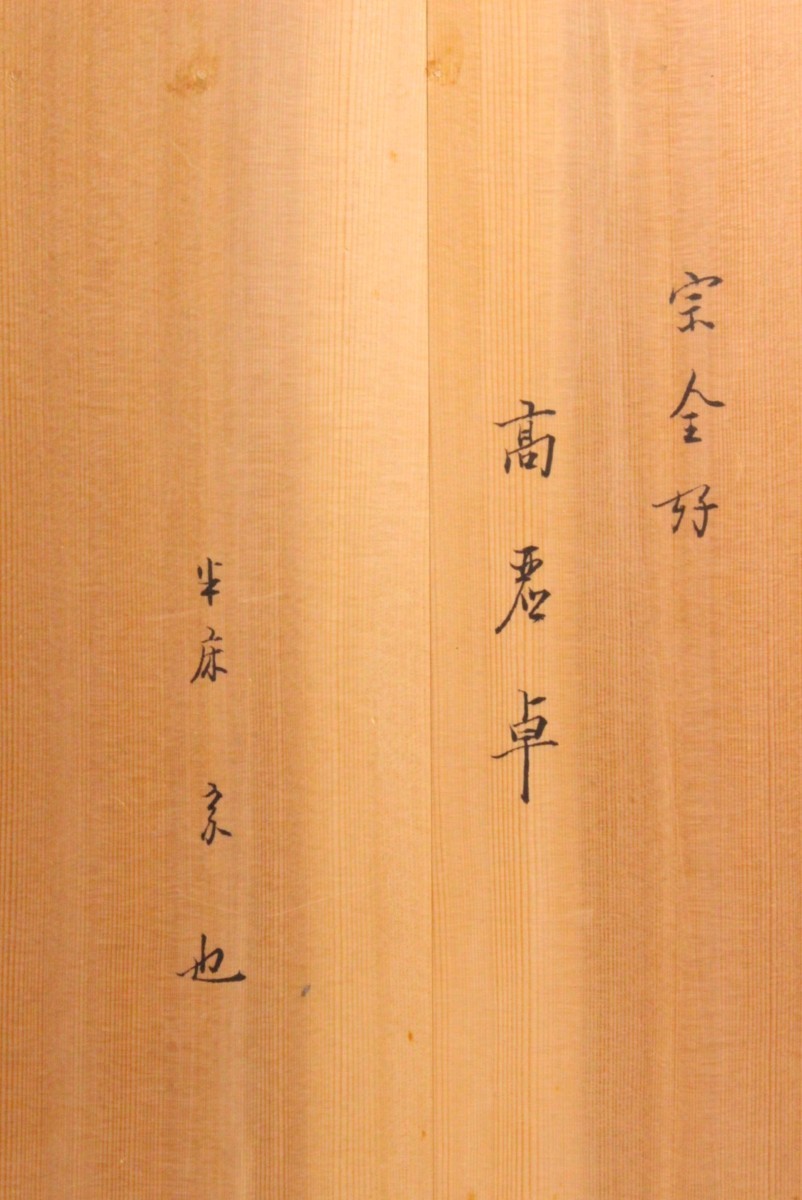 宗全好
高麗卓
半床 宗也